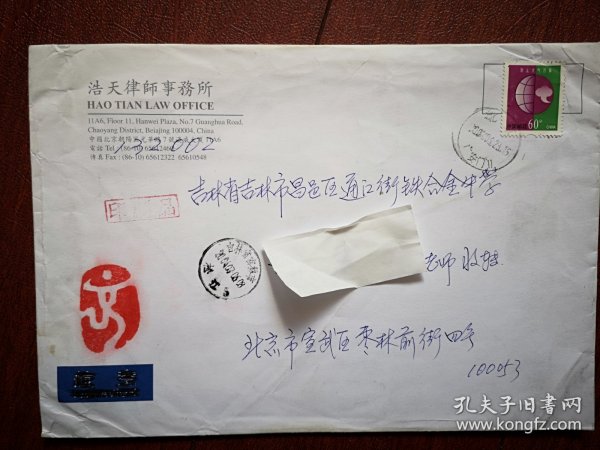 浩天律師事務所
HAO TIAN LAW OFFICE
11A6, Floor 11, Hanwei Plaza, No.7 Guanghua Road,
Chaoyang District, Beijing 100004, China
中國北京朝陽區光華路7號漢威大廈11A6
電話 Tel : (86-10) 6561246
傳真 Fax : (86-10) 65612322 65610548
132002
60
吉林省吉林市昌邑区通江街铁合金中学
印刷品
老师 收
北京市宣武区枣林前街四号
100053
孔夫子旧书网
www.kongfz.com